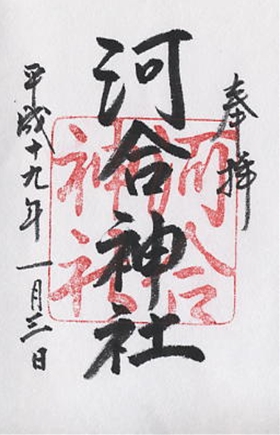 奉拝
河合神社
河合
神社
平成十九年一月三日